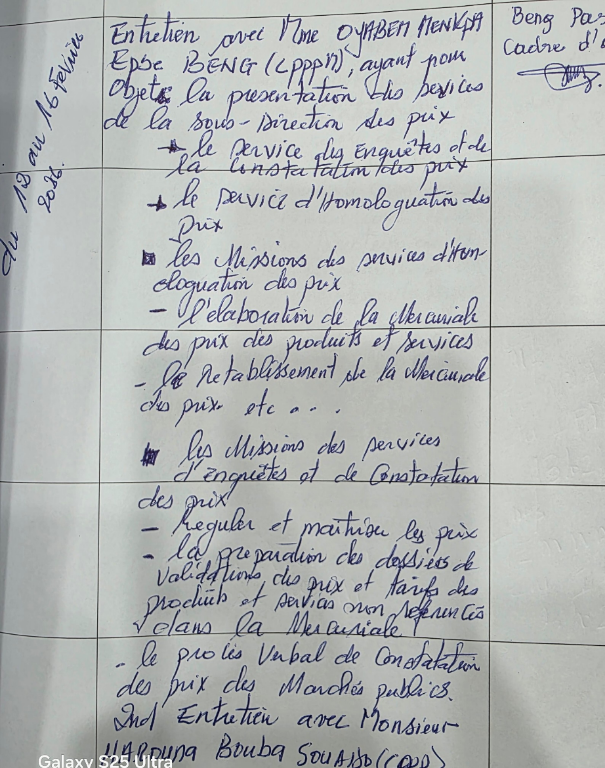 du 12 au 16 Février
2026.
Entretien avec Mme OYABEM MENKPA
Epse BENG (CPPPN), ayant pour
Objet: la présentation des services
de la Sous-Direction des prix
le service des Enquêtes et de
la Constatation des prix
le service d'Homologuation des
prix
les Missions des services d'Hom-
ologuation des prix
- l'élaboration de la Mercuriale
des prix des produits et services
- le Retablissement de la Mercuriale
des prix. etc . . .
les Missions des services
d'Enquêtes et de Constatation
des prix
- Reguler et maîtriser les prix
- la préparation des dossiers de
validations des prix et tarifs des
produits et services non référencés
dans la Mercuriale
- le procès Verbal de Constatation
des prix des Marchés publics.
2nd Entretien avec Monsieur
HAROUNA Bouba
Beng Pas
Cadre d'
Galaxy S25 Ultra